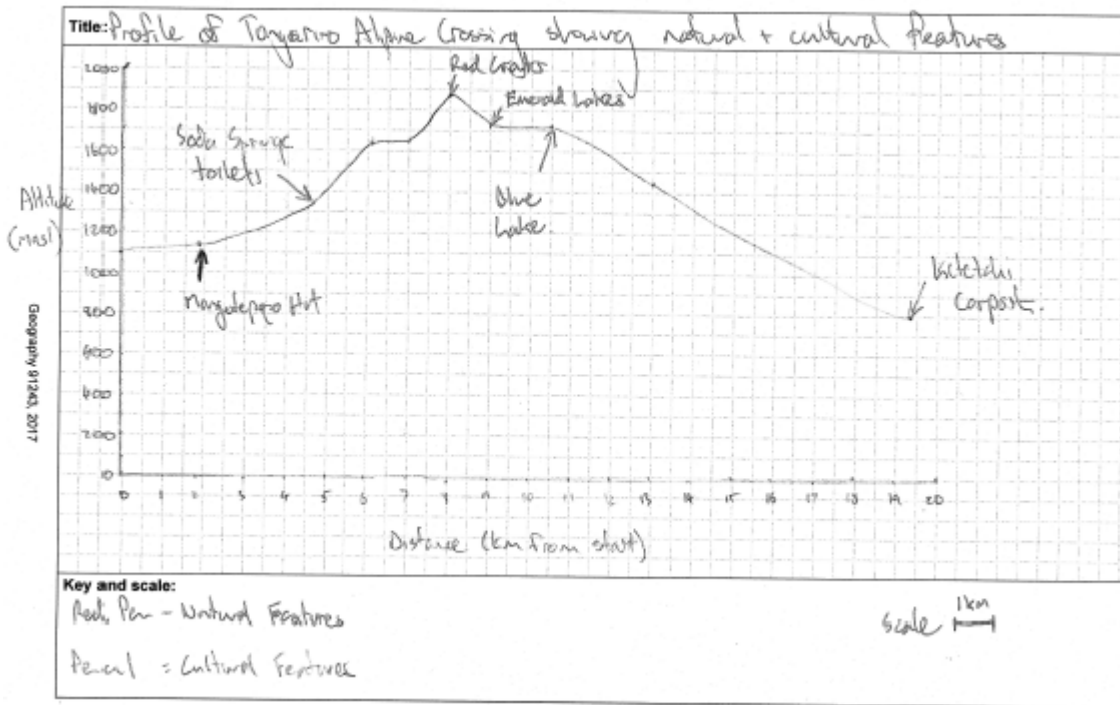 Title: Profile of Tongariro Alpine Crossing showing natural + cultural features
Red Crater
Emerald Lakes
Soda Springs
toilets
Blue
Lake.
Mangatepopo Hut
Ketetahi
Carpark.
Altitude
(masl)
2000
1800
1600
1400
1200
1000
800
600
400
200
0
0 1 2 3 4 5 6 7 8 9 10 11 12 13 14 15 16 17 18 19 20
Distance (km from start)
Geography 91243, 2017
Key and scale:
Red Pen - Natural Features
Pencil = Cultural Features
Scale 1km